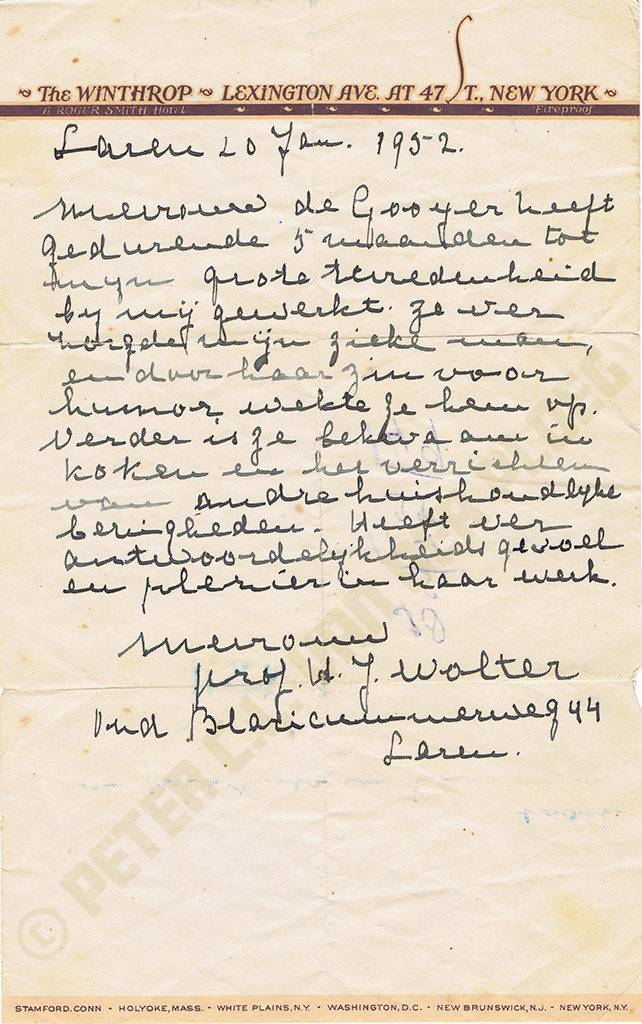 The WINTHROP LEXINGTON AVE. AT 47 ST., NEW YORK
A ROGER SMITH HOTEL Fireproof
Laren 20 Jan. 1952.
Mevrouw de Gooyer heeft
gedurende 5 maanden tot
mijn grote tevredenheid
by mij gewerkt. Ze ver
zorgde mijn zieke man,
en door haar zin voor
humor wekte ze hem op.
Verder is ze bekwaam in
koken en het verrichten
van andre huishoudelyke
bezigheden. Heeft ver
antwoordelykheids gevoel
en plezier in haar werk.
Mevrouw
prof. H. J. Wolter
Oud Blaricummerweg 44
Laren.
© PETER
STAMFORD, CONN - HOLYOKE, MASS. - WHITE PLAINS, N.Y. - WASHINGTON, D.C. - NEW BRUNSWICK, N.J. - NEW YORK, N.Y.